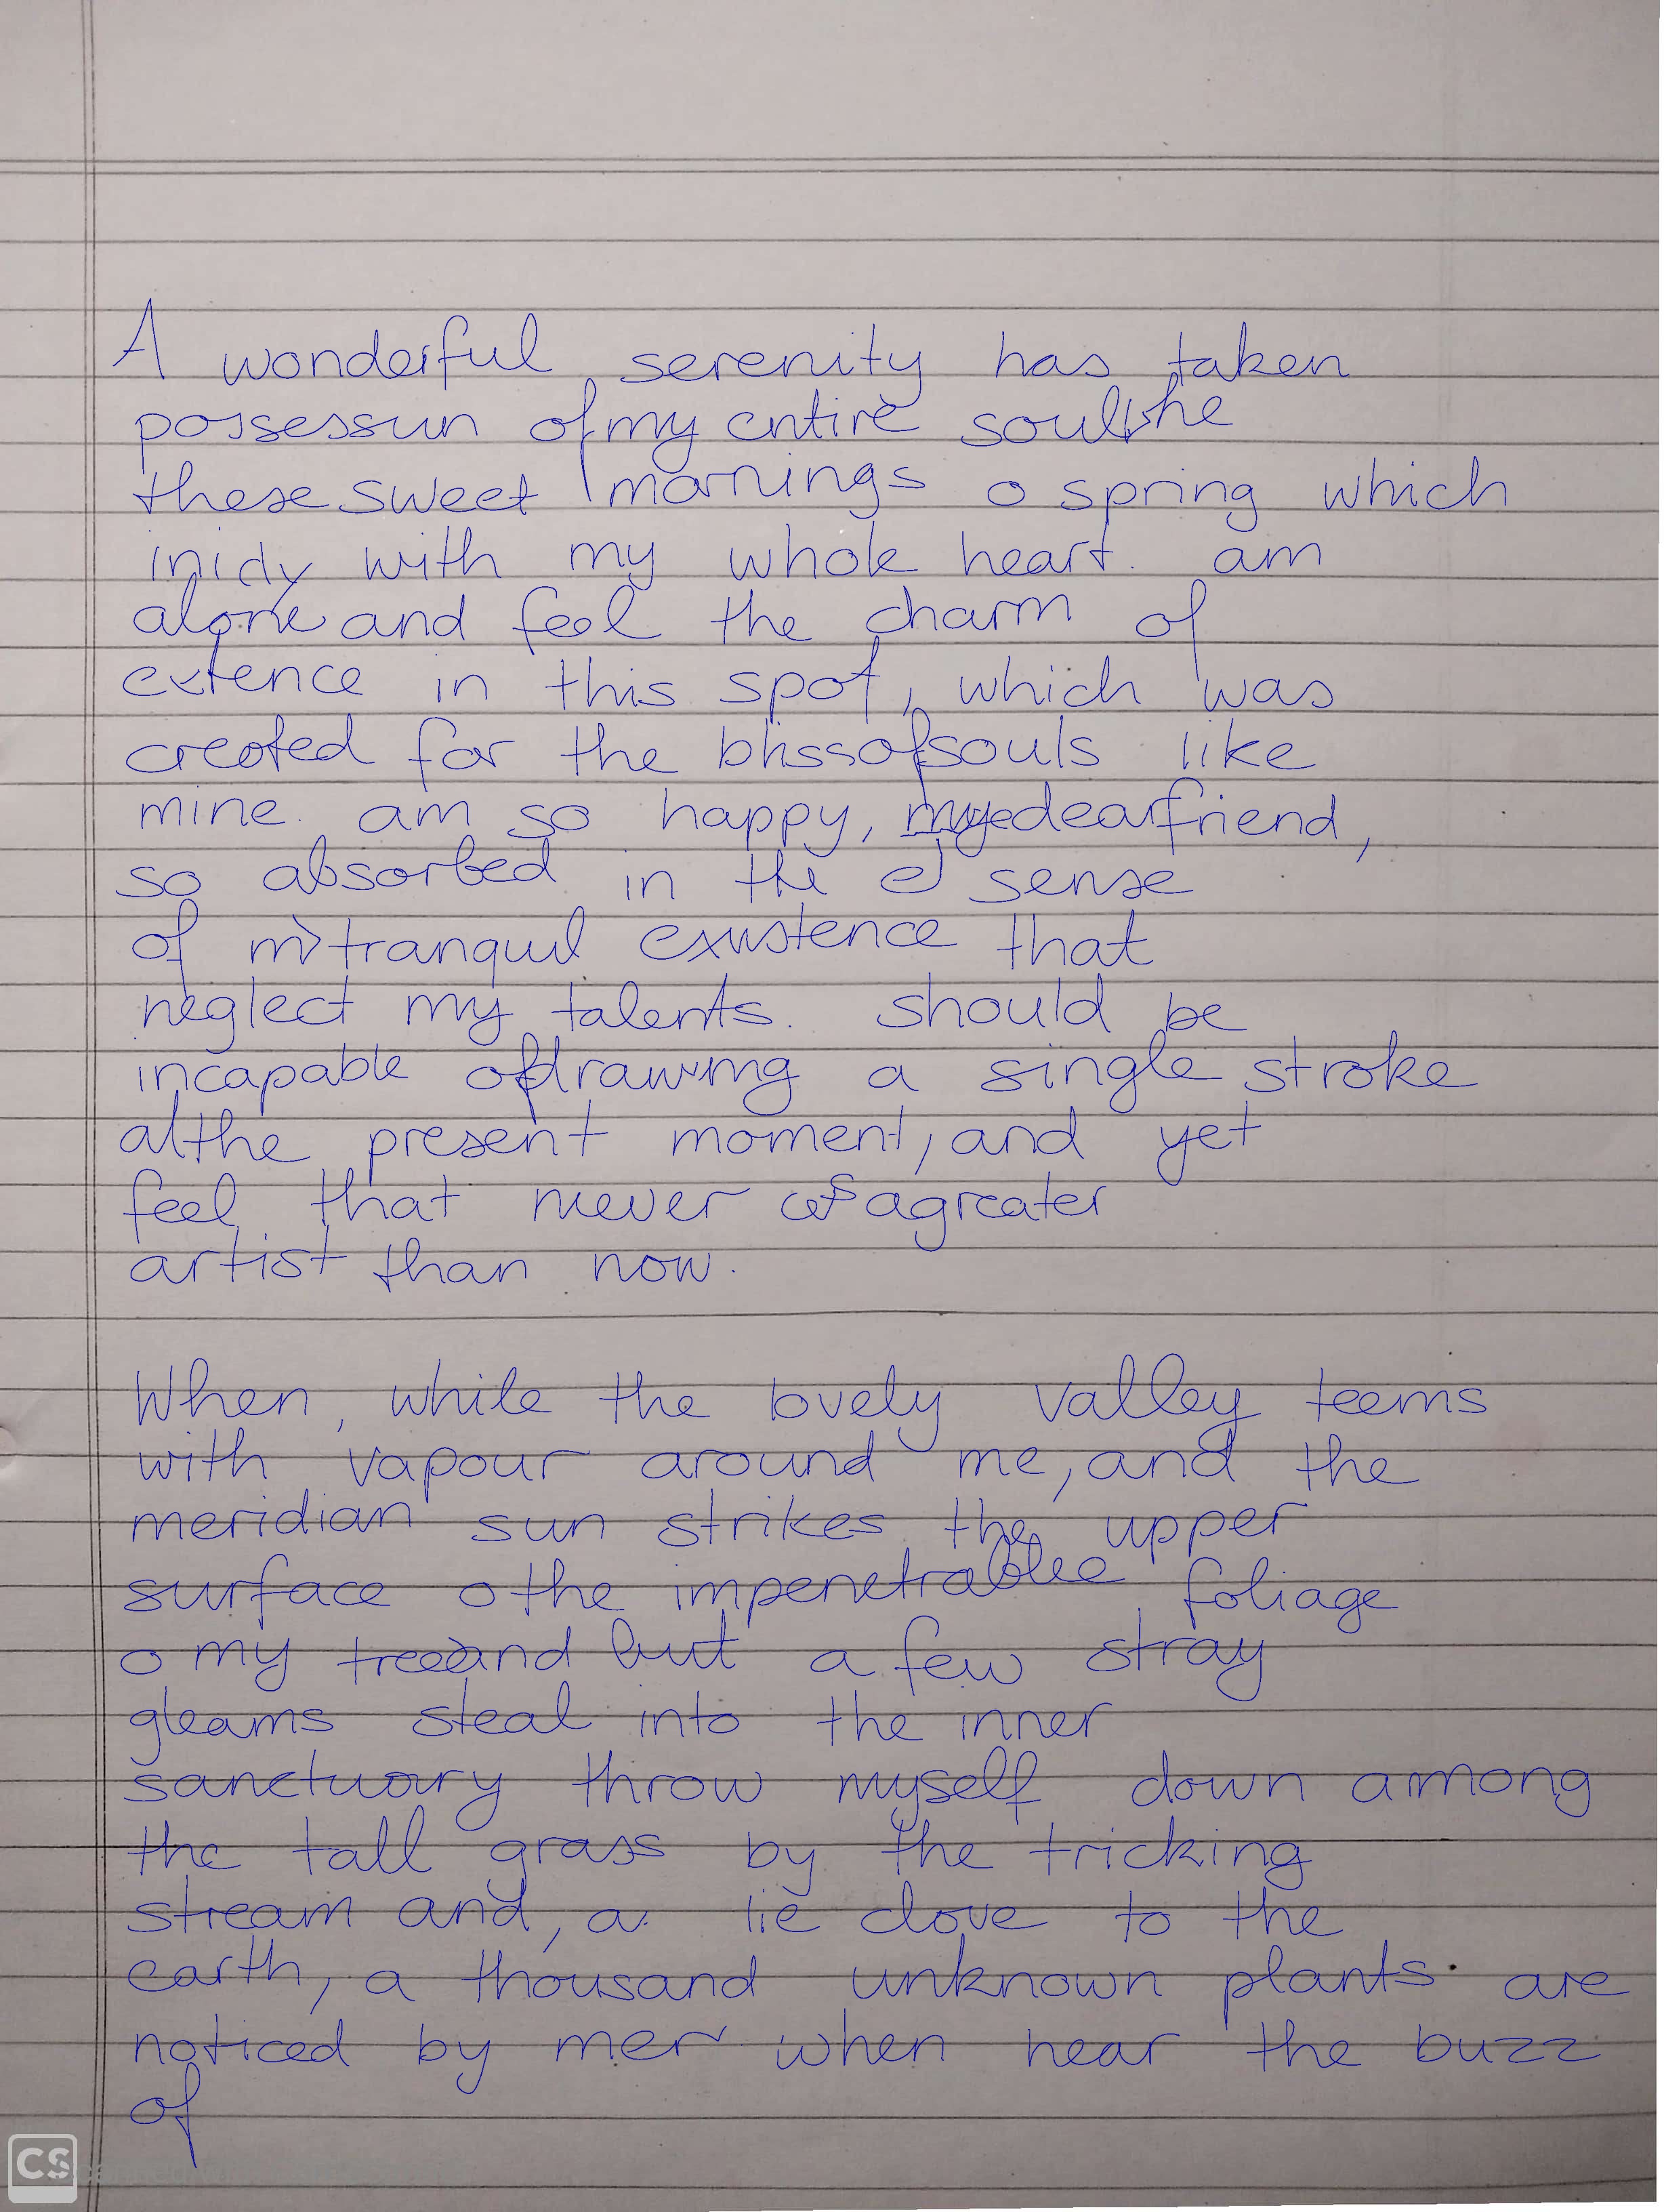 A wonderful serenity has taken
possessun of my entire soul the
these sweet mornings o spring which
inidy with my whole heart. am
alone and feel the charm of
extence in this spot, which was
created for the bliss of souls like
mine. am so happy, my dear friend,
so absorbed in the sense
of m tranquil existence that
neglect my talents. should be
incapable of drawing a single stroke
at the present moment, and yet
feel that never a greater
artist than now.
When, while the lovely valley teems
with vapour around me, and the
meridian sun strikes the upper
surface o the impenetrablee foliage
o my tree and but a few stray
gleams steal into the inner
sanctuary throw myself down among
the tall grass by the tricking
stream and, a. lie clove to the
earth, a thousand unknown plants are
noticed by mer when hear the buzz
of
CS